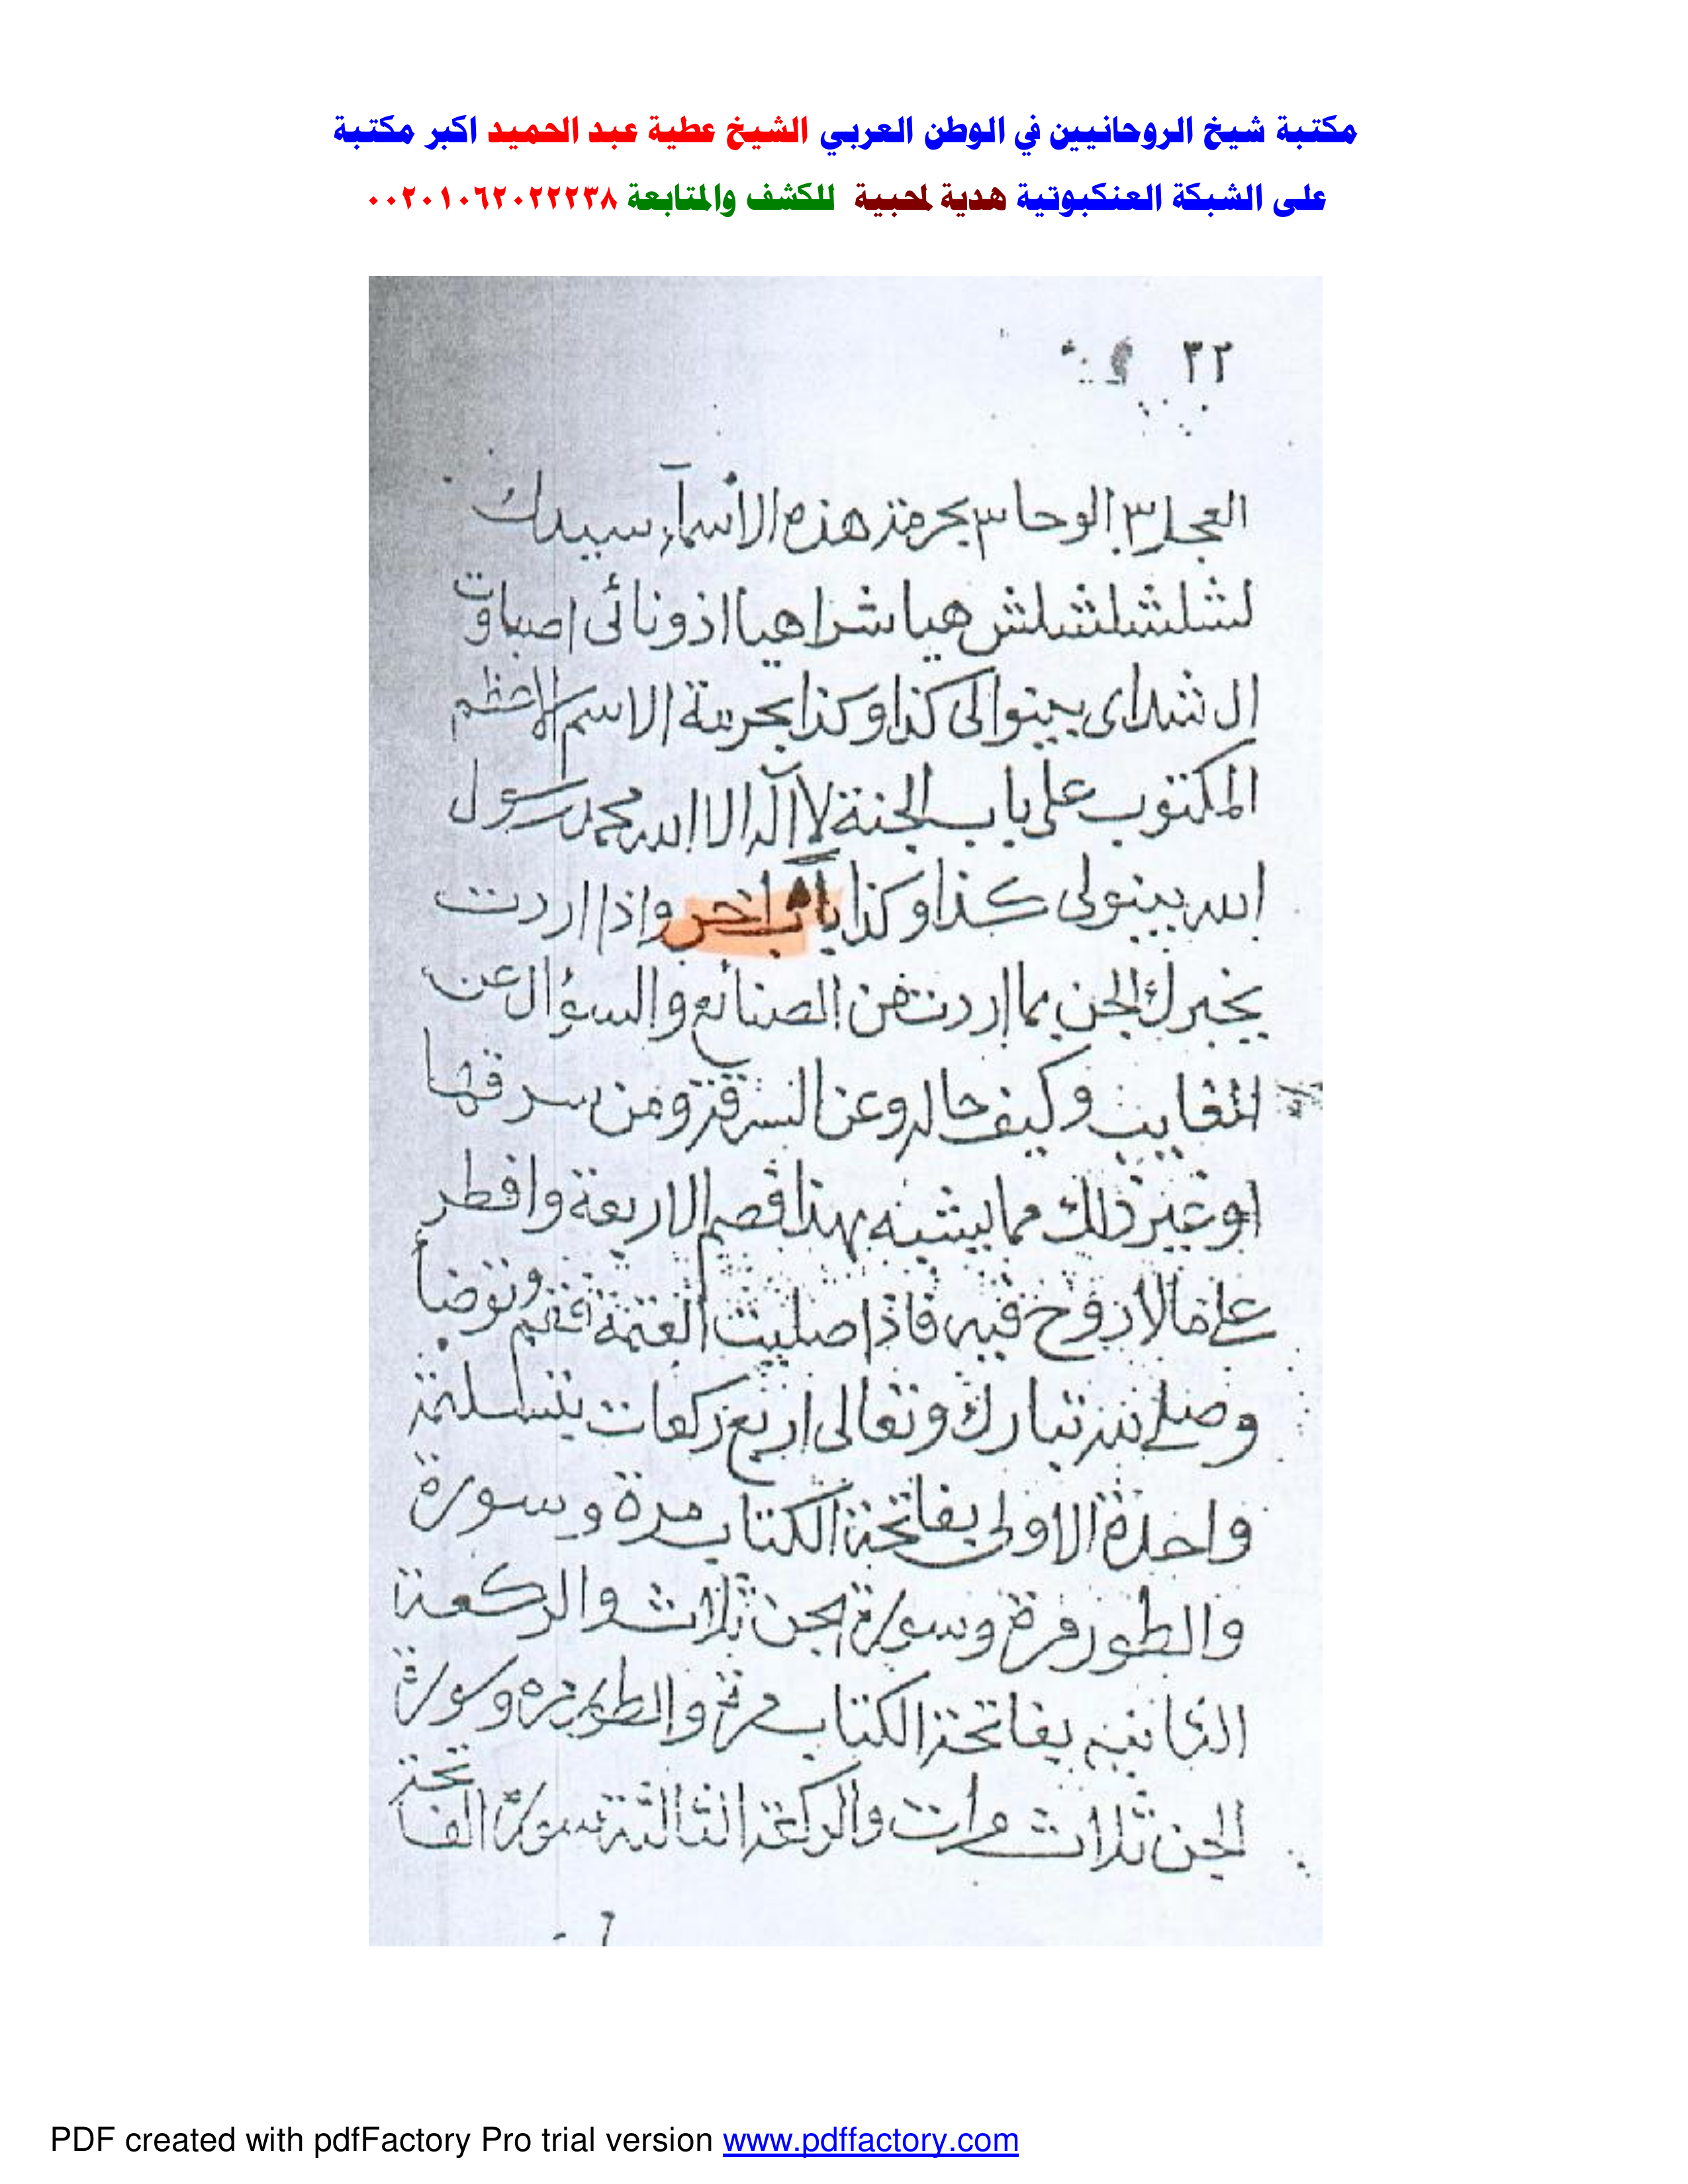 مكتبة شيخ الروحانيين في الوطن العربي الشيخ عطية عبد الحميد اكبر مكتبة
على الشبكة العنكبوتية هدية لمحبية للكشف والمتابعة ٠٠٢٠١٠٦٢٠٢٢٢٣٨
٣٢
العجل ٣ الوحا ٣ بحرمة هذه الأسمآء سيدك
لشلشلشلش هيا شراهيا اذونائى اصباوت
ال شداى بينوا لى كذا وكذا بحرمة الاسم الاعظم
المكتوب على باب الجنة لا آله الا الله محمد رسول
الله بينو لى كذا وكذا باب اخر واذا اردت
يخبرك الجن بما اردت من الصنائع والسؤال عن
الغايب وكيف حاله وعن السرقة ومن سرقها
او غير ذلك مما يشبه بهذا فصم الاربعة وافطر
على مالا روح فيه فاذا صليت العتمة فقم وتوضأ
وصلى تبارك وتعالى اربع ركعات بتسليمة
واحدة الاولى بفاتحة الكتاب مرة وسورة
والطور مرة وسورة الجن ثلاث والركعة
الثانيه بفاتحة الكتاب مرة والطور مره وسورة
الجن ثلاث مرات والركعة الثالثة سورة الفاتحة
PDF created with pdfFactory Pro trial version www.pdffactory.com